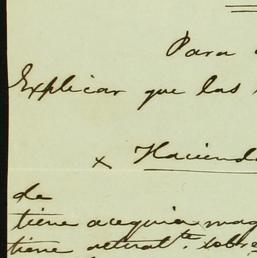 Para
Explicar que las
x Haciend
de
tiene acequia mag
tiene actual.te sobre